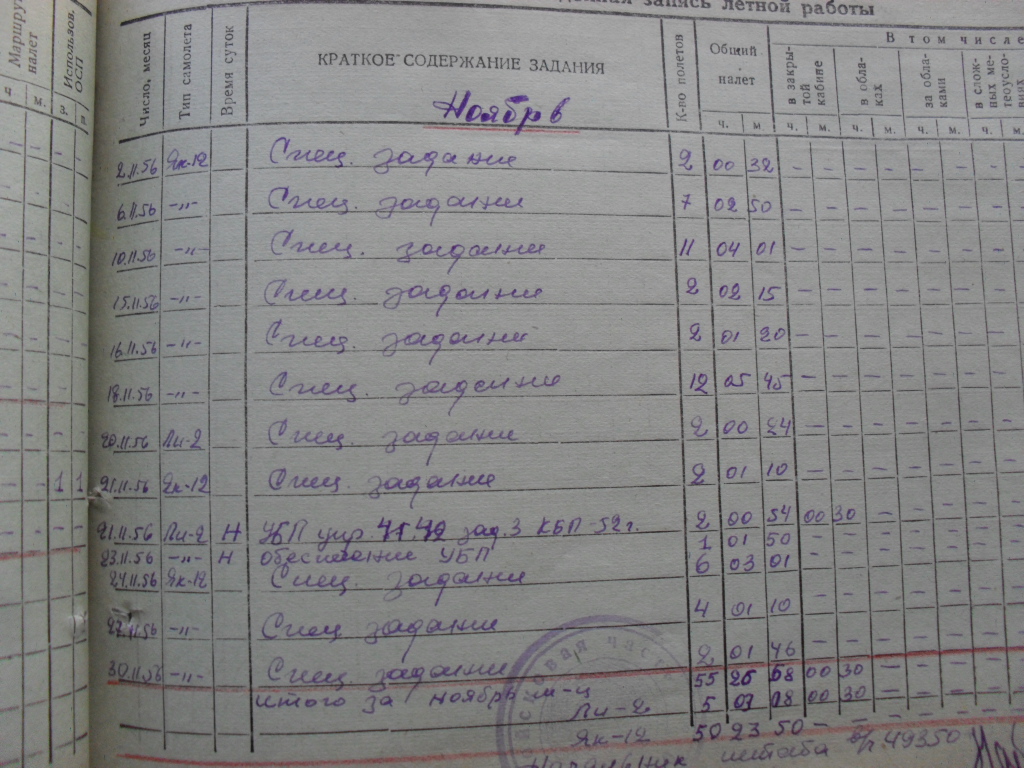 запись летной работы
Маршрут. налет
Использов. ОСП
Число, месяц
Тип самолета
Время суток
КРАТКОЕ СОДЕРЖАНИЕ ЗАДАНИЯ
К-во полетов
Общий налет
В том числе
в закрытой кабине
в облаках
за облаками
в сложных метеоусловиях
ч. м. з. ч. м. ч. м. ч. м. ч. м. ч. м.
Ноябрь
2.11.56 Як-12 Спец. задание 2 00 32 - - - - - - -
6.11.56 -"- Спец. задание 7 02 50 - - - - - - -
10.11.56 -"- Спец. задание 11 04 01 - - - - - - -
15.11.56 -"- Спец. задание 2 02 15 - - - - - - -
16.11.56 -"- Спец. задание 2 01 20 - - - - - - -
18.11.56 -"- Спец. задание 12 05 45 - - - - - - -
20.11.56 Ли-2 Спец. задание 2 00 24 - - - - - - -
1 1 21.11.56 Як-12 Спец. задание 2 01 10 - - - - - - -
21.11.56 Ли-2 Н УБП упр. зад. 3 КБП-52г. 2 00 54 00 30 - - - - -
23.11.56 -"- Н обеспечение УБП 1 01 50 - - - - - - -
24.11.56 Як-12 Спец. задание 6 03 01 - - - - - - -
27.11.56 -"- Спец. задание 4 01 10 - - - - - - -
30.11.56 -"- Спец. задание 2 01 46 - - - - - - -
итого за ноябрь м-ц 55 58 00 30 - - - - -
Ли-2 5 03 08 00 30 - - - - -
Як-12 50 23 50 - - - - - - -
Начальник штаба в/ч. 49350